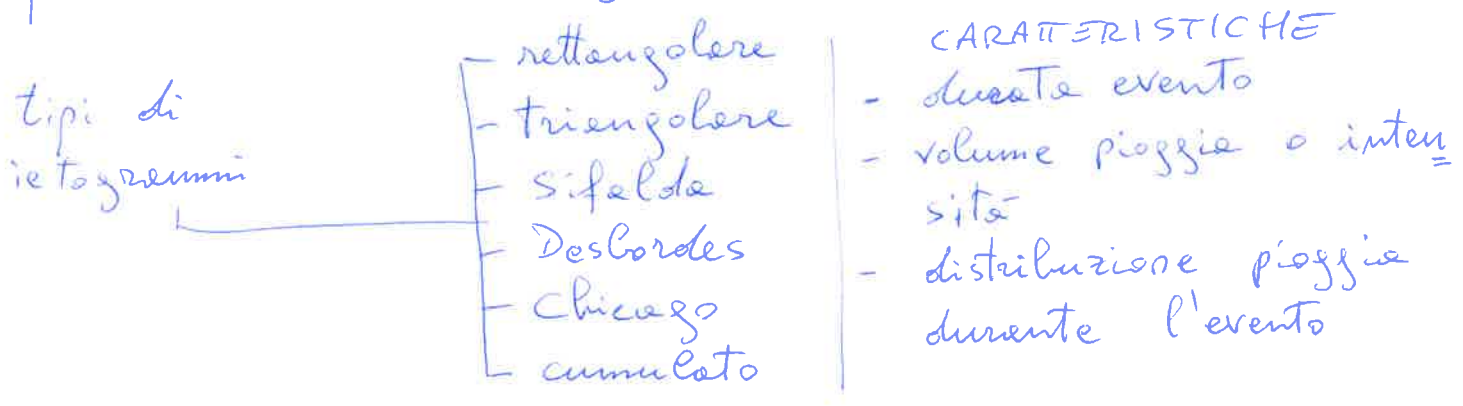 tipi di
ietogrammi
- rettangolare
- triangolare
- Sifalda
- Desbordes
- Chicago
- cumulato
CARATTERISTICHE
- durata evento
- volume pioggia o inten
sità
- distribuzione pioggia
durante l'evento